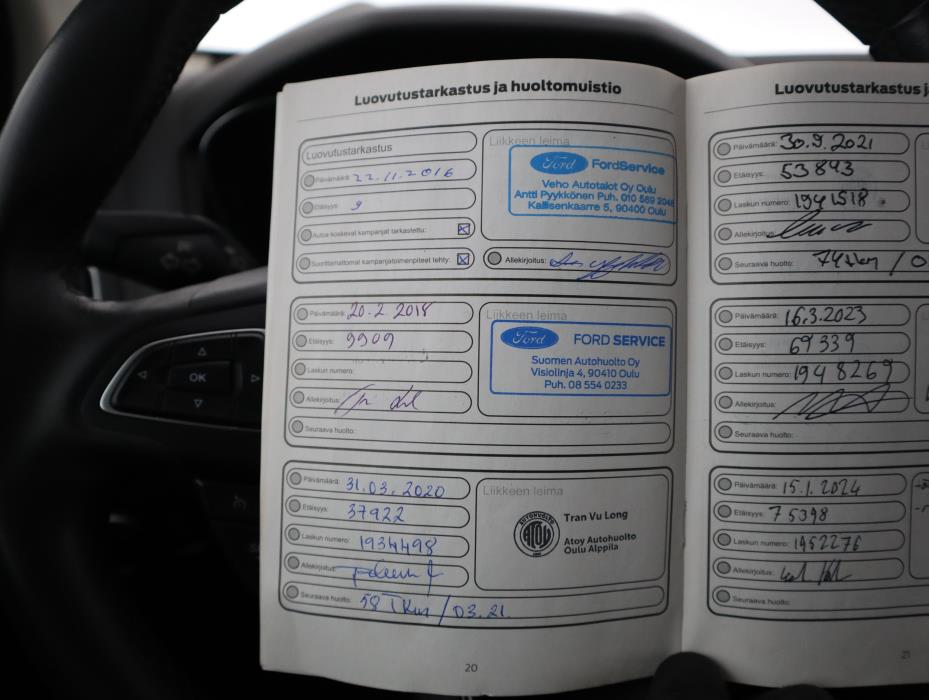 OK
Luovutustarkastus ja huoltomuistio
Luovutustarkastus
Päivämäärä: 22.11.2016
Etäisyys: 9
Autoa koskevat kampanjat tarkastettu:
Suorittamattomat kampanjatoimenpiteet tehty:
Liikkeen leima
Ford FordService
Veho Autotalot Oy Oulu
Antti Pyykkönen Puh. 010 569 2046
Kallisenkaarre 5, 90400 Oulu
Allekirjoitus:
Päivämäärä: 20.2 2018
Etäisyys: 9909
Laskun numero:
Allekirjoitus:
Seuraava huolto:
Liikkeen leima
Ford FORD SERVICE
Suomen Autohuolto Oy
Visiolinja 4, 90410 Oulu
Puh. 08 554 0233
Päivämäärä: 31.03.2020
Etäisyys: 37922
Laskun numero: 1934498
Allekirjoitus:
Seuraava huolto: 58 TKm / 03.21.
Liikkeen leima
AUTOHUOLTO
ATOY
Tran Vu Long
Atoy Autohuolto
Oulu Alppila
20
Luovutustarkastus j
Päivämäärä: 30.9.2021
Etäisyys: 53843
Laskun numero: 1941518
Allekirjoitus:
Seuraava huolto: 74tkm / 0
Päivämäärä: 16.3.2023
Etäisyys: 69339
Laskun numero: 1948269
Allekirjoitus:
Seuraava huolto:
Päivämäärä: 15.1.2024
Etäisyys: 75398
Laskun numero: 1952276
Allekirjoitus:
Seuraava huolto:
21